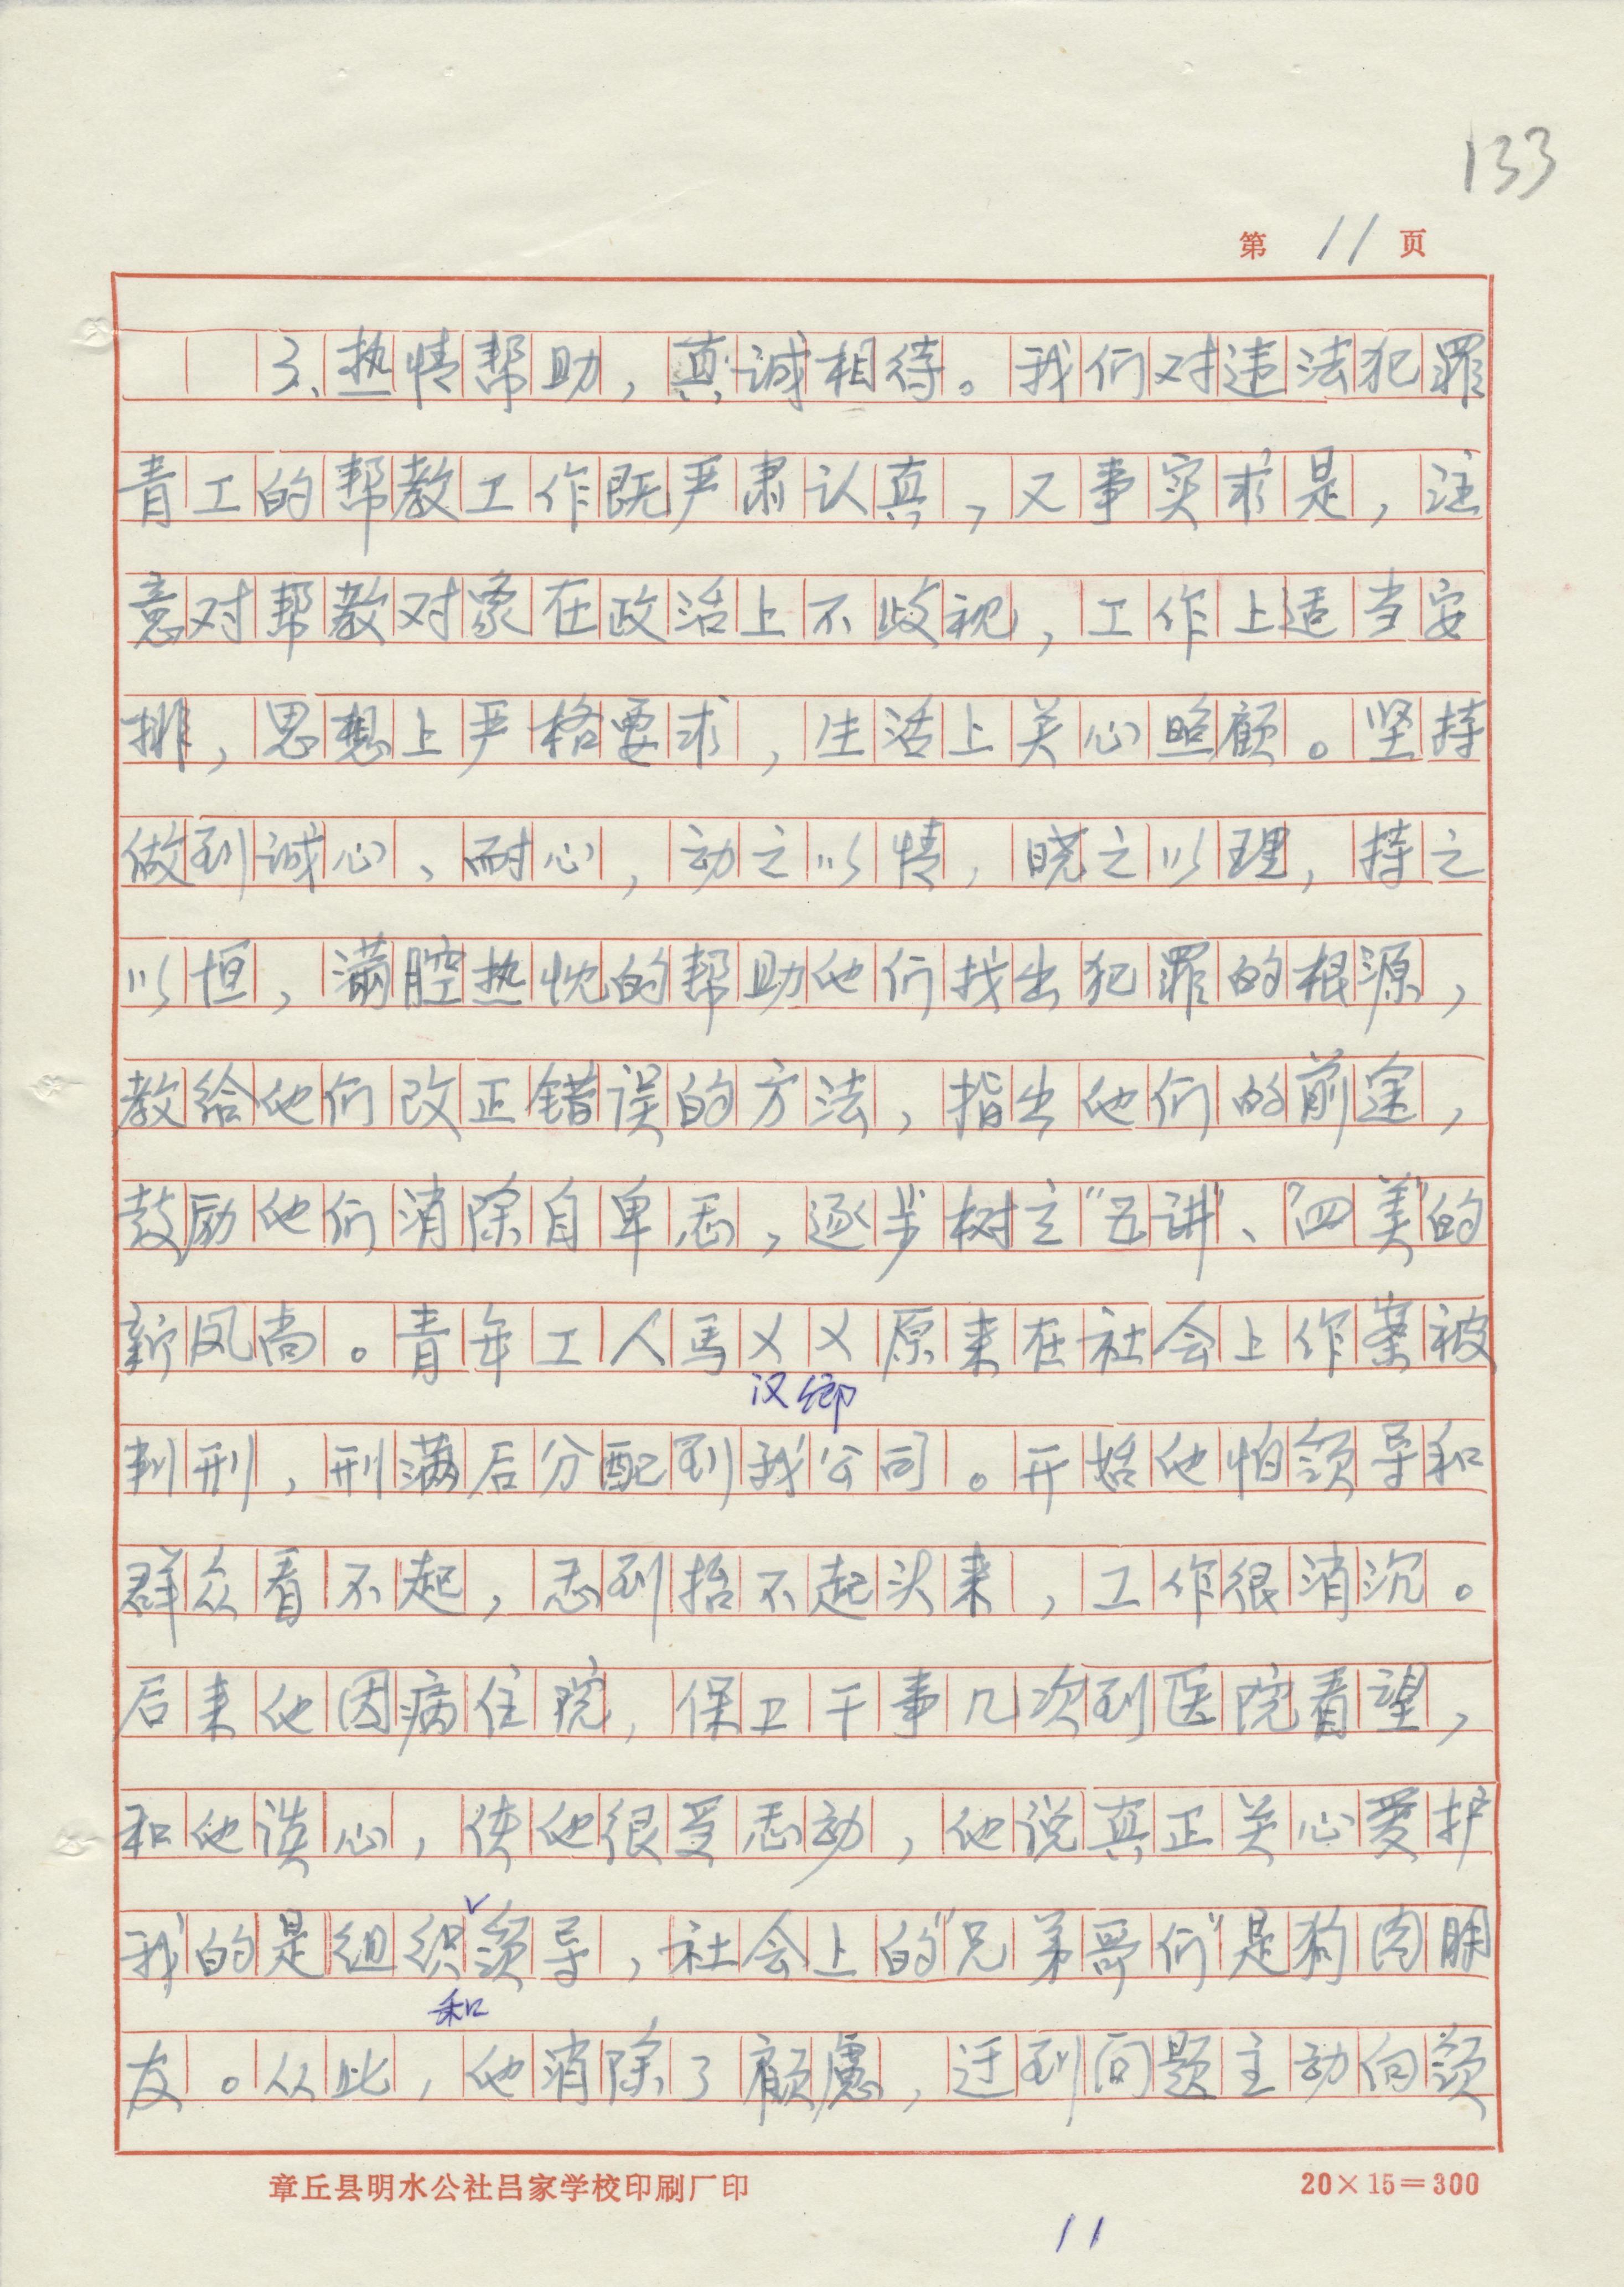 133
第 11 页
3、热情帮助，真诚相待。我们对违法犯罪
青工的帮教工作既严肃认真，又事实求是，注
意对帮教对象在政治上不歧视，工作上适当安
排，思想上严格要求，生活上关心照顾。坚持
做到诚心、耐心，动之以情，晓之以理，持之
以恒，满腔热忱的帮助他们找出犯罪的根源，
教给他们改正错误的方法，指出他们的前途，
鼓励他们消除自卑感，逐步树立"五讲"、"四美"的
新风尚。青年工人马××原来在社会上作案被
汉卿
判刑，刑满后分配到我公司。开始他怕领导和
群众看不起，感到抬不起头来，工作很消沉。
后来他因病住院，保卫干事几次到医院看望，
和他谈心，使他很受感动，他说真正关心爱护
我的是组织领导，社会上的"兄弟哥们"是狗肉朋
和
友。从此，他消除了顾虑，迂到问题主动向领
章丘县明水公社吕家学校印刷厂印 20×15=300
11